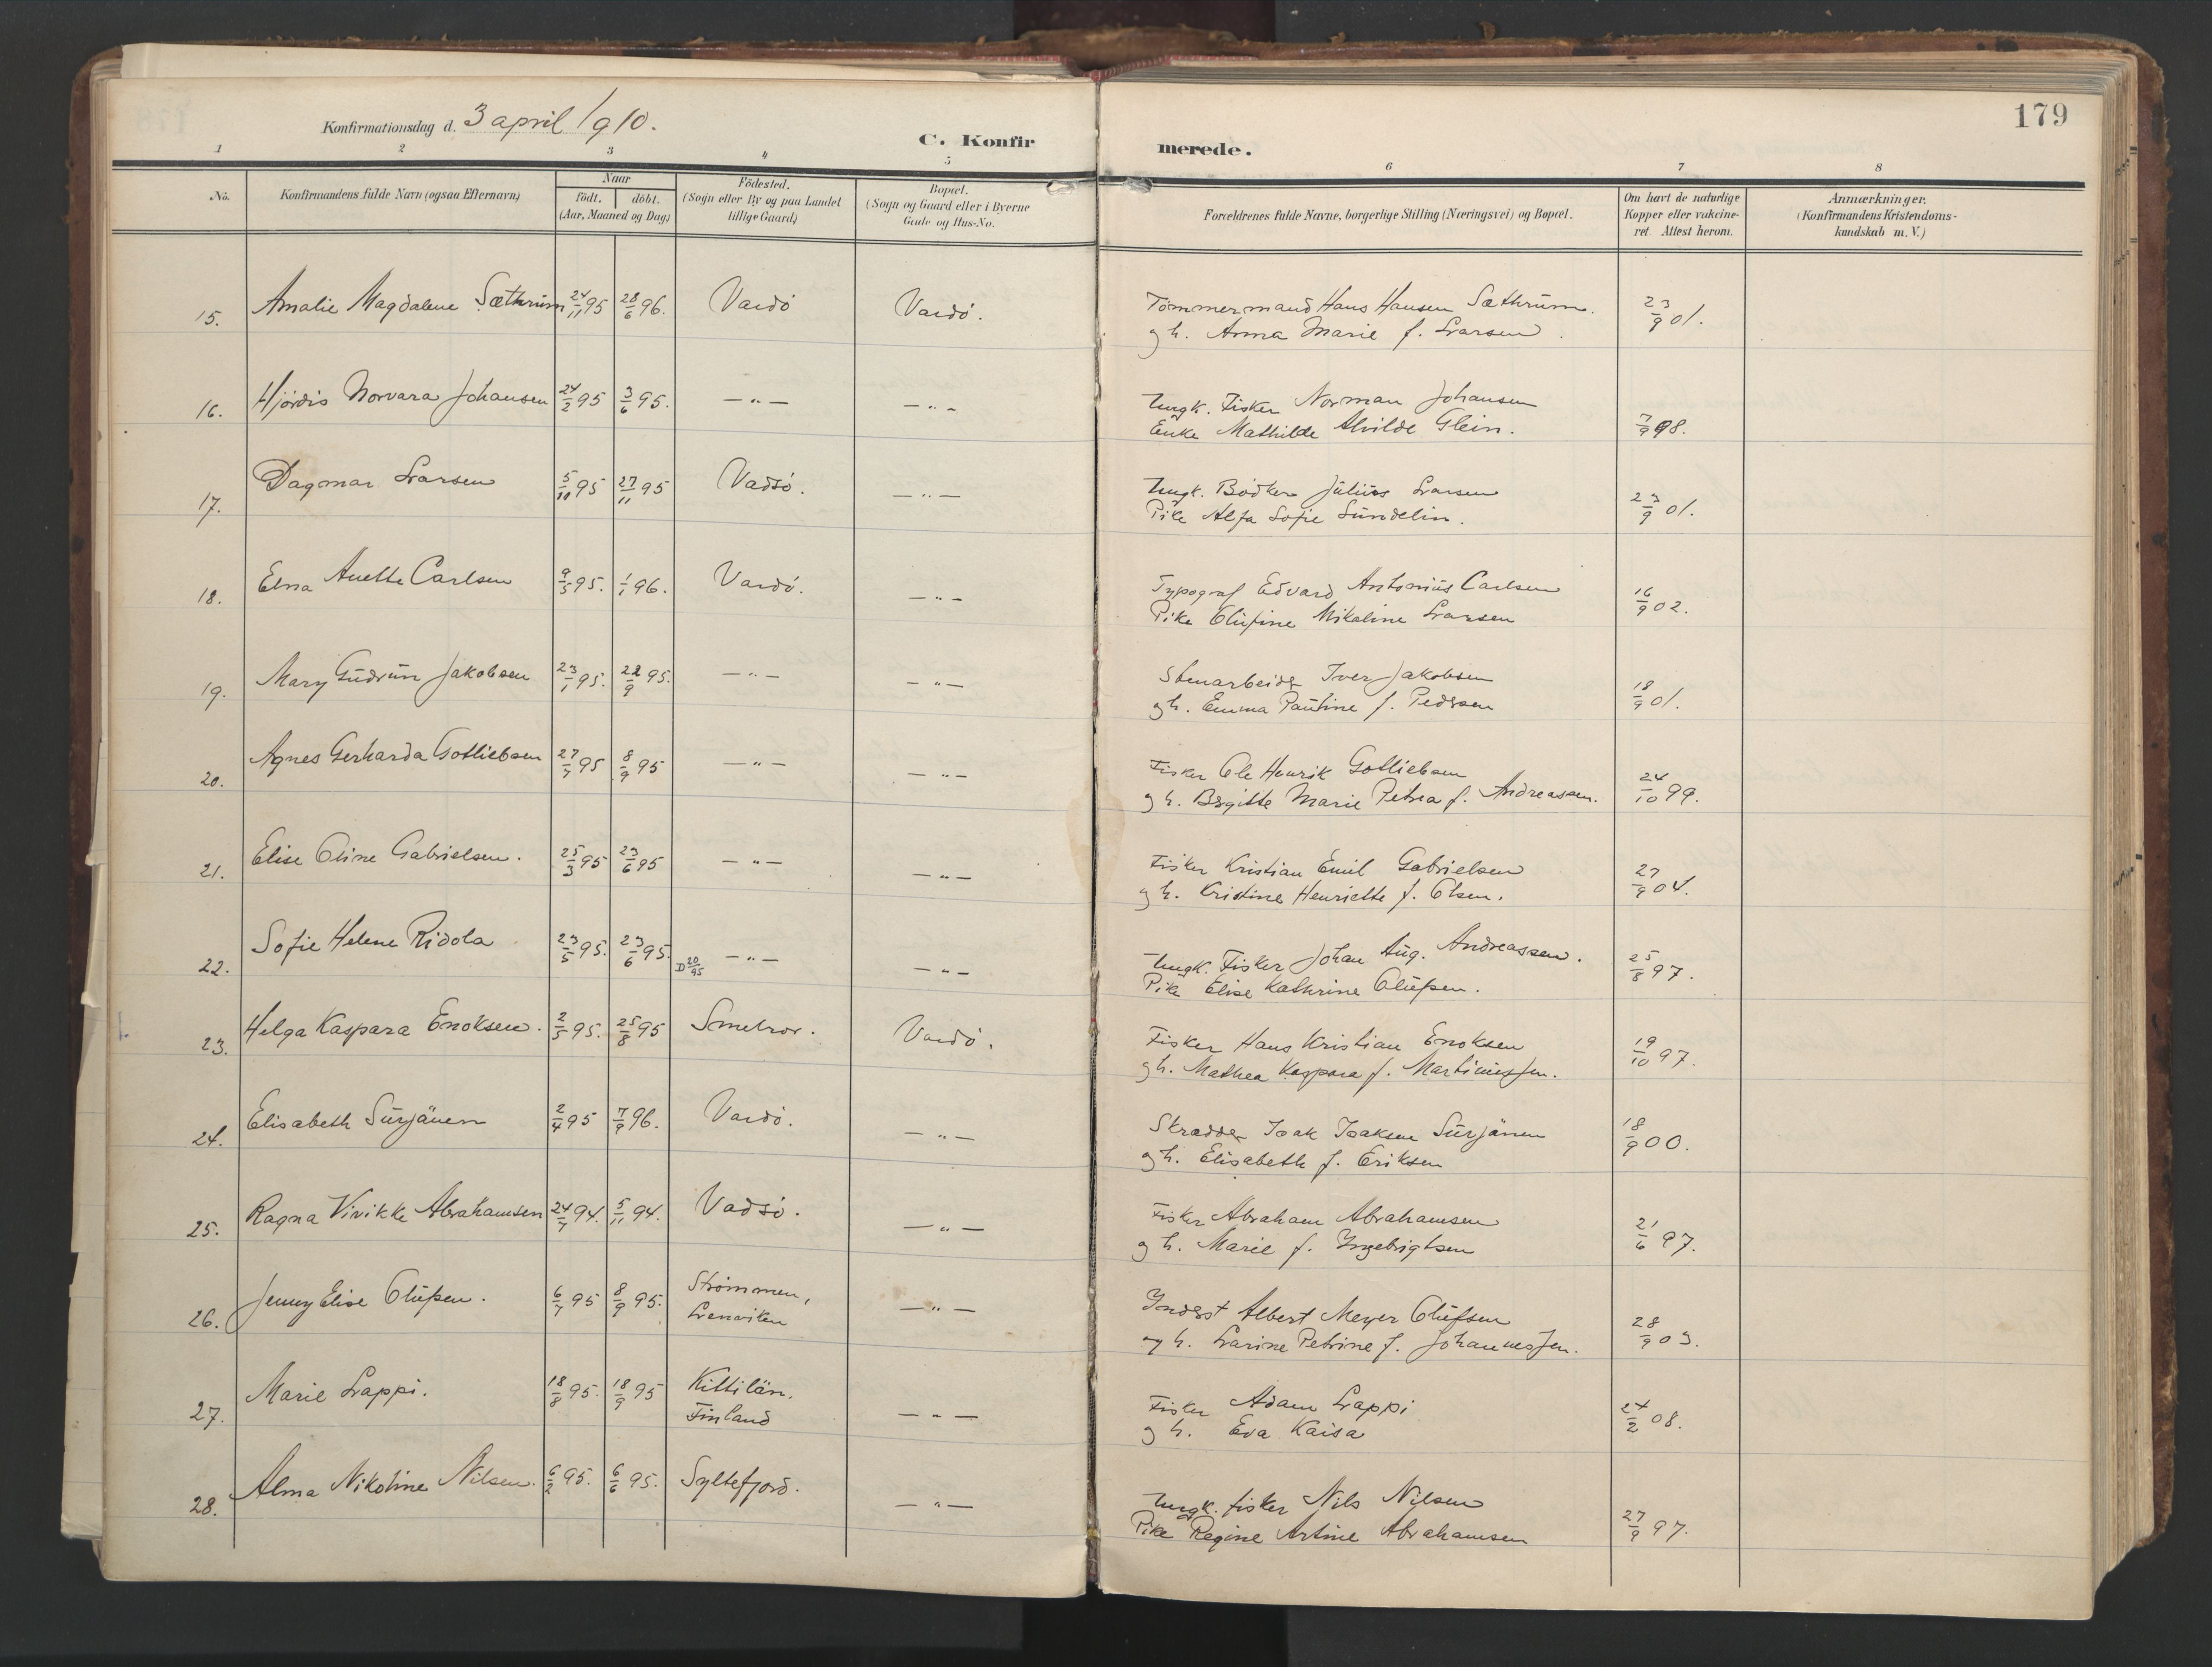 179
Konfirmationsdag d. 3 april 1910.
C. Konfirmerede.
1 2 3 4 5 6 7 8
No. | Konfirmandens fulde Navn (ogsaa Efternavn) | Naar født. døbt. (Aar, Maaned og Dag) | Fødested. (Sogn eller By og paa Landet tillige Gaard) | Bopæl. (Sogn og Gaard eller i Byerne Gade og Hus-No. | Forældrenes fulde Navne, borgerlige Stilling (Næringsvei) og Bopæl. | Om havt de naturlige Kopper eller vakcineret. Attest herom. | Anmærkninger. (Konfirmandens Kristendomskundskab m. V.)
15. Amalie Magdalene Sæthrum 24/11 95 28/6 96. Vardö Vardö. Tömmermand Hans Hansen Sæthrum. 23/9 01.
g h. Anna Marie f. Larsen.
16. Hjördis Norvara Johansen 24/2 95 3/6 95. —"— —"— Ungk. Fisker Norman Johansen
Enke Mathilde Alvilde Glein. 7/9 98.
17. Dagmar Larsen 5/10 95 27/11 95 Vadsö. —"— Ungk. Bödker Julius Larsen 23/9 01.
Pike Alfa Sofie Sundelin.
18. Elna Anette Carlsen 9/5 95. 1/1 96. Vardö. —"— Typograf Edvard Antonius Carlsen 16/9 02.
Pike Olufine Nikoline Larsen
19. Mary Gudrun Jakobsen 23/1 95. 22/9 95. —"— —"— Stenarbeider Iver Jakobsen
gh. Emma Pauline f. Pedersen 18/9 01.
20. Agnes Gerharda Gotliebsen 27/7 95 8/9 95 —"— —"— Fisker Ole Henrik Gotliebsen
g h. Brgitte Marie Petrea f. Andreassen. 24/10 99.
21. Elise Oline Gabrielsen. 25/3 95 23/6 95 —"— —"— Fisker Kristian Emil Gabrielsen
g h. Kristine Henriette f. Olsen. 27/9 04.
22. Sofie Helene Ridola 23/5 95. 23/6 95. D 20/95 —"— —"— Ungk. Fisker Johan Aug. Andreassen. 25/8 97.
Pike Elise Kathrine Olufsen.
23. Helga Kaspara Enoksen. 2/5 95. 25/8 95 Smelror. Vardö. Fisker Hans Kristian Enoksen 19/10 97.
gh. Mathea Kaspara f. Martinussen.
24. Elisabeth Surjänen 2/4 95 7/9 96. Vardö. —"— Skrædder Isak Isaksen Surjänen 18/9 00.
g h. Elisabeth f. Eriksen
25. Ragna Vivikke Abrahamsen 24/7 94. 5/11 94. Vadsö. —"— Fisker Abraham Abrahamsen
g h. Marie f. Ingebrigtsen 21/6 97.
26. Jenny Elise Olufsen. 6/7 95 8/9 95. Strömmen, Lenviken —"— Inderst Albert Meyer Olufsen
og h. Larine Petrine f. Johannessen. 28/9 03.
27. Marie Lappi. 18/8 95. 18/9 95 Kittilän. Finland —"— Fisker Adam Lappi
g h. Eva Kaisa 24/2 08.
28. Alma Nikoline Nilsen. 6/2 95. 6/6 95. Syltefjord. —"— Ungk. fisker Nils Nilsen
Pike Regine Artine Abrahamsen 27/9 97.